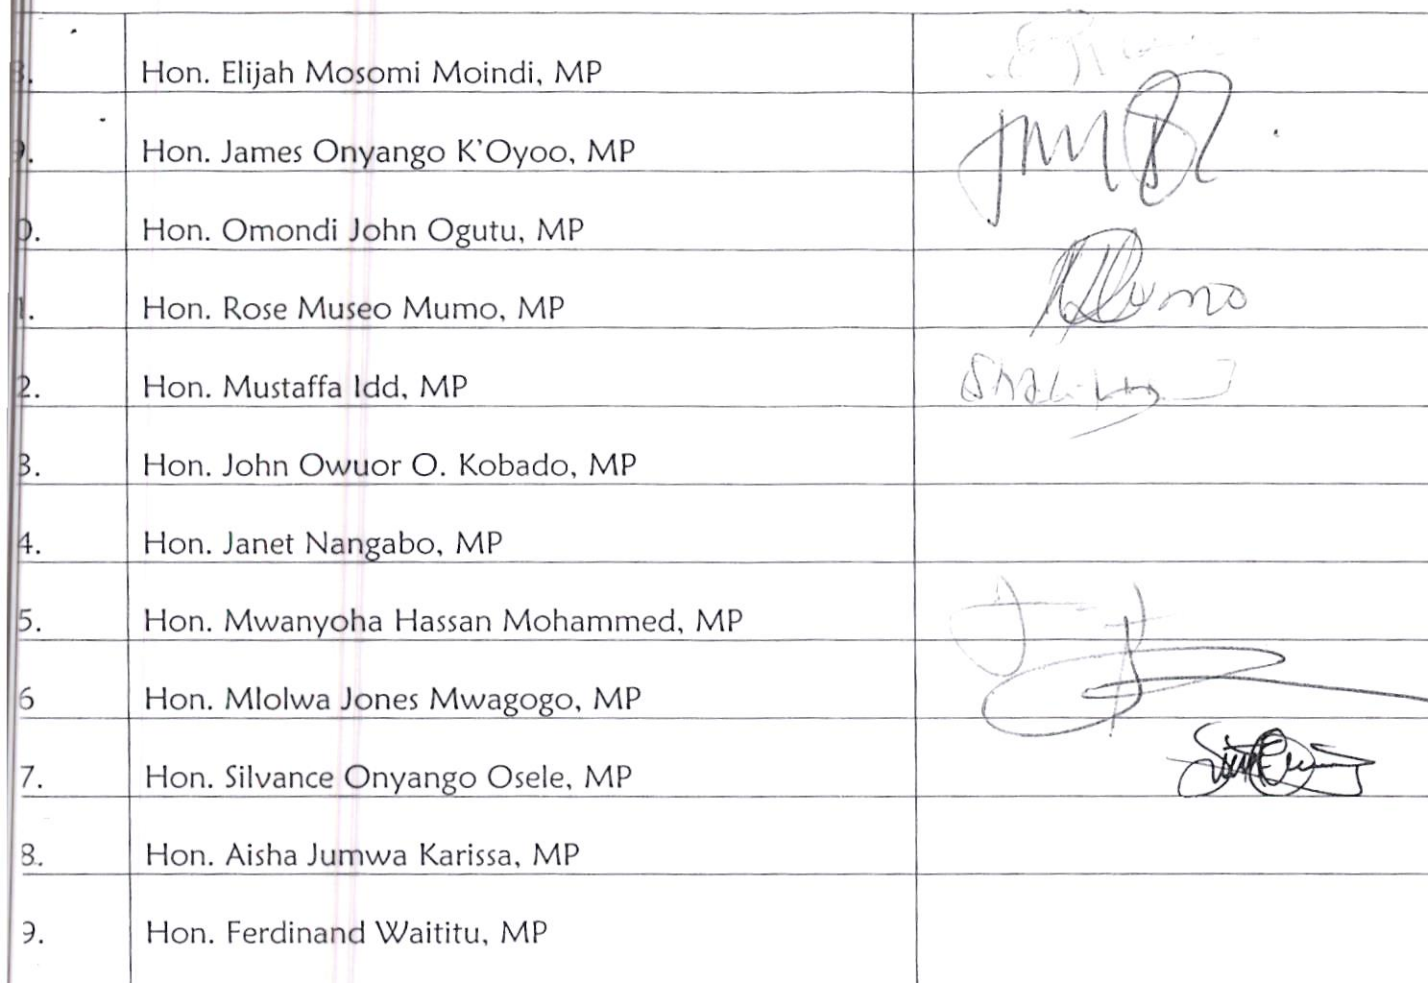 8. Hon. Elijah Mosomi Moindi, MP
9. Hon. James Onyango K'Oyoo, MP
0. Hon. Omondi John Ogutu, MP
1. Hon. Rose Museo Mumo, MP Mumo
2. Hon. Mustaffa Idd, MP
3. Hon. John Owuor O. Kobado, MP
4. Hon. Janet Nangabo, MP
5. Hon. Mwanyoha Hassan Mohammed, MP
6 Hon. Mlolwa Jones Mwagogo, MP
7. Hon. Silvance Onyango Osele, MP
8. Hon. Aisha Jumwa Karissa, MP
9. Hon. Ferdinand Waititu, MP